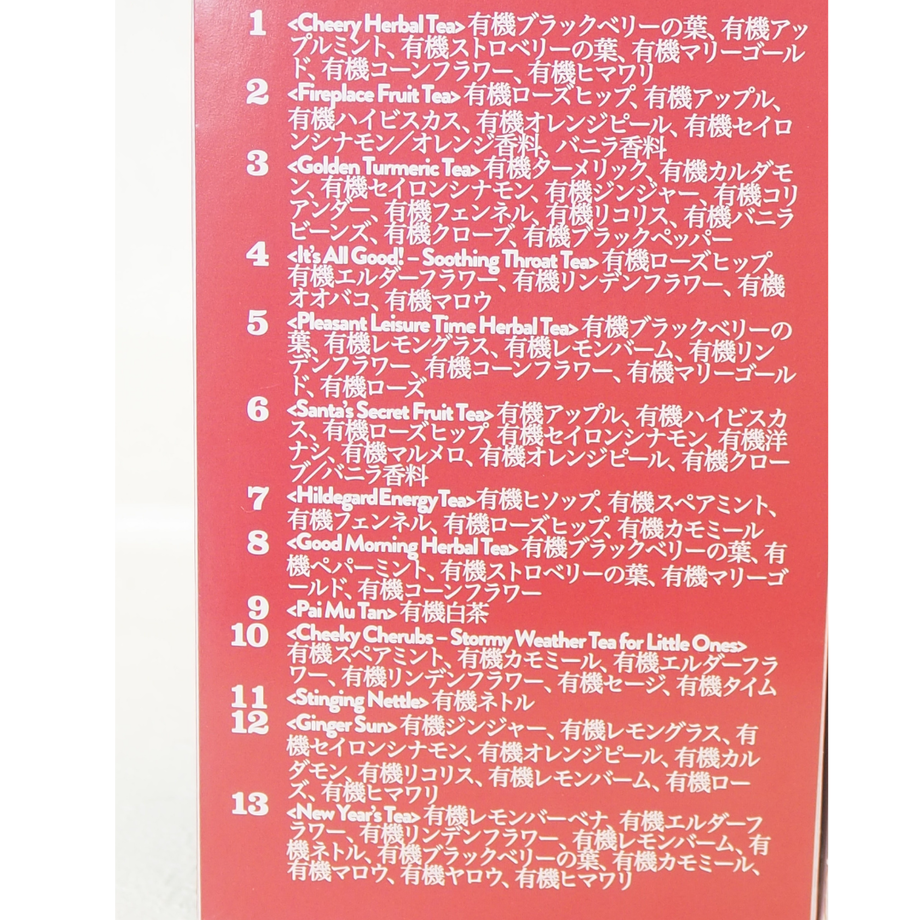 1 <Cheery Herbal Tea> 有機ブラックベリーの葉、有機アッ
プルミント、有機ストロベリーの葉、有機マリーゴール
ド、有機コーンフラワー、有機ヒマワリ
2 <Fireplace Fruit Tea> 有機ローズヒップ、有機アップル、
有機ハイビスカス、有機オレンジピール、有機セイロ
ンシナモン／オレンジ香料、バニラ香料
3 <Golden Turmeric Tea> 有機ターメリック、有機カルダモ
ン、有機セイロンシナモン、有機ジンジャー、有機コリ
アンダー、有機フェンネル、有機リコリス、有機バニラ
ビーンズ、有機クローブ、有機ブラックペッパー
4 <It's All Good! – Soothing Throat Tea> 有機ローズヒップ、
有機エルダーフラワー、有機リンデンフラワー、有機
オオバコ、有機マロウ
5 <Pleasant Leisure Time Herbal Tea> 有機ブラックベリーの
葉、有機レモングラス、有機レモンバーム、有機リン
デンフラワー、有機コーンフラワー、有機マリーゴール
ド、有機ローズ
6 <Santa's Secret Fruit Tea> 有機アップル、有機ハイビスカ
ス、有機ローズヒップ、有機セイロンシナモン、有機洋
ナシ、有機マルメロ、有機オレンジピール、有機クロー
ブ／バニラ香料
7 <Hildegard Energy Tea> 有機ヒソップ、有機スペアミント、
有機フェンネル、有機ローズヒップ、有機カモミール
8 <Good Morning Herbal Tea> 有機ブラックベリーの葉、有
機ペパーミント、有機ストロベリーの葉、有機マリーゴ
ールド、有機コーンフラワー
9 <Pai Mu Tan> 有機白茶
10 <Cheeky Cherubs – Stormy Weather Tea for Little Ones>
有機スペアミント、有機カモミール、有機エルダーフラ
ワー、有機リンデンフラワー、有機セージ、有機タイム
11 <Stinging Nettle> 有機ネトル
12 <Ginger Sun> 有機ジンジャー、有機レモングラス、有
機セイロンシナモン、有機オレンジピール、有機カル
ダモン、有機リコリス、有機レモンバーム、有機ロー
ズ、有機ヒマワリ
13 <New Year's Tea> 有機レモンバーベナ、有機エルダーフ
ラワー、有機リンデンフラワー、有機レモンバーム、有
機ネトル、有機ブラックベリーの葉、有機カモミール、
有機マロウ、有機ヤロウ、有機ヒマワリ